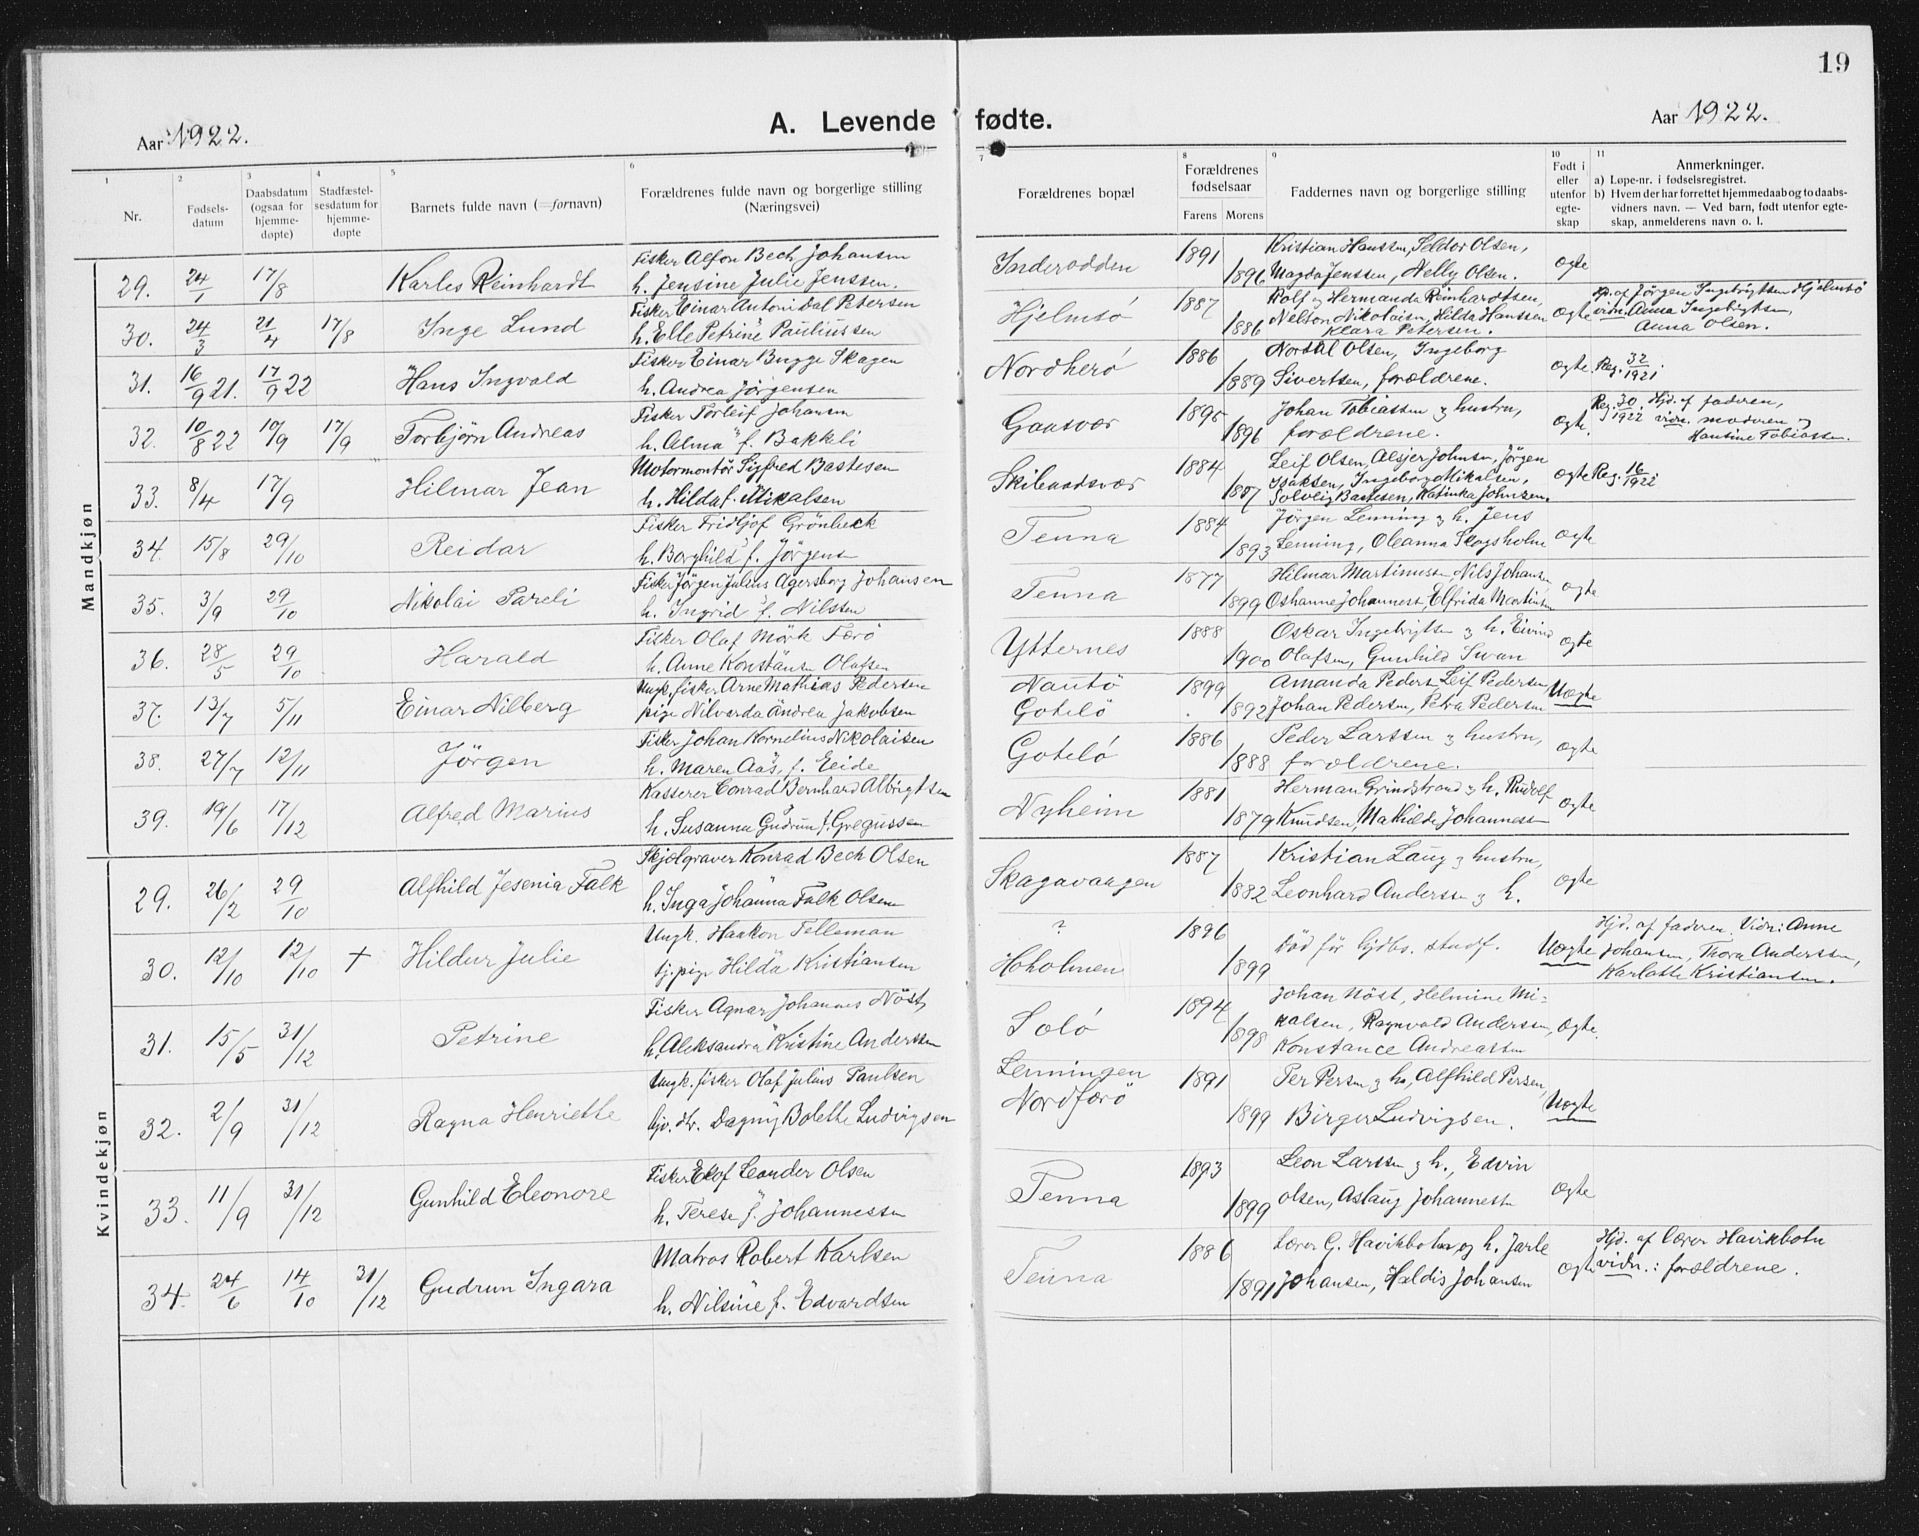 19
Aar 1922.
A. Levende fødte.
Aar 1922.
1 2 3 4 5 6 7 8 9 10 11
Nr.
Fødsels-
datum
Daabsdatum
(ogsaa for
hjemme-
døpte)
Stadfæstel-
sesdatum for
hjemme-
døpte
Barnets fulde navn (=fornavn)
Forældrenes fulde navn og borgerlige stilling
(Næringsvei)
Forældrenes bopæl
Forældrenes
fødselsaar
Farens Morens
Faddernes navn og borgerlige stilling
Født i
eller
utenfor
egte-
skap
Anmerkninger.
a) Løpe-nr. i fødselsregistret.
b) Hvem der har forrettet hjemmedaab og to daabs-
vidners navn. — Ved barn, født utenfor egte-
skap, anmelderens navn o. l.
Mandkjøn
29. 24/1 17/8 Karles Reinhardt
Fisker Alfon Bech Johansen
h. Jensine Julie Jenssen.
Inderodden 1891 1896
Kristian Hanssen, Seldor Olsen,
Magda Jenssen, Nelly Olsen.
ogte
30. 24/3 21/4 17/8 Inge Lund
Fisker Einar Antoni Dal Petersen
h. Elle Petrine Paulinssen
Hjelmsö 1887 1886
Rolf og Hermanda Reinhardtsen,
Nelson Nikolaisn, Hilda Hanssen
Klara Petersen.
ogte
Hj. af Jörgen Ingebrigtsen Hjelmsö
vidn. Anna Ingebrigtsen,
Anna Olsen.
31. 16/9 21. 17/9 22 Hans Ingvald
Fisker Einar Bugge Skagen
h. Andrea Jörgensen
Nordherö 1886 1889
Nordal Olsen, Ingeborg
Sivertsen, forældrene.
ogte. Reg. 32/1921.
32. 10/8 22 10/9 17/9 Torbjörn Andreas
Fisker Torleif Johansn
h. Alma f. Bakkli
Gaasvær 1895 1896
Johan Tobiassen og hustru,
forældrene.
ogte. Reg. 30/1922 Hjd. af faderen,
vidn. moderen og
Hansine Tobiassen.
33. 8/4 17/9 Hilmar Jean
Motormontör Sigfred Bastesen
h. Hilda f. Mikalsen
Skibaadsvær 1884 1887
Leif Olsen, Alsjer Johnsen, Jörgen
Isaksen, Ingeborg Mikalsen,
Solveig Bastesen, Katinka Johnsen.
ogte Reg. 16/1922
34. 15/8 29/10 Reidar
Fisker Fridtjof Grönbeck
h. Borghild f. Jörgens
Tenna 1884 1893
Jörgen Lenning og h. Jens
Lenning, Oleanna Skogsholm
ogte
35. 3/9 29/10 Nikolai Pareli
Fisker Jörgen Julius Agersborg Johansen
h. Ingrid f. Nilssen
Tenna 1877 1899
Hilmar Martinussn, Nils Johansn
Oshanne Johannesn, Elfrida Martinsn
ogte
36. 28/5 29/10 Harald
Fisker Olaf Mörk Færö
h. Anne Konstänse Olafsen
Ytternes 1888 1900
Oskar Ingebrigtsn og h. Eivind
Olafsen, Gunhild Svan
ogte
37. 13/7 5/11 Einar Nilberg
Ungk. fisker Arne Mathias Pedersen
pige Nilvarda Andrea Jakobsen
Nautö
Gotelö 1899 1892
Amanda Peders, Leif Pedersen
Johan Pedersen, Petra Pedersen
Uægte
38. 27/7 12/11 Jörgen
Fisker Johan Kornelius Nikolaisen
h. Maren Aas, f. Eeide
Gotelö 1886 1888
Peder Larssen og hustru,
forældrene.
ogte
39. 19/6 17/12 Alfred Marius
Kasserer Conrad Bernhard Albrigtsen
h. Susanna Gudrun f. Gregussen
Nyheim 1881 1879
Herman Grindstrand og h. Rudolf
Knudsen, Mathilde Johannesn
ogte
Kvindekjøn
29. 26/2 29/10 Alfhild Jesenia Falk
Skjælgraver Konrad Bech Olsen
h. Inga Johanna Falk Olsen
Skagavaagen 1887 1882
Kristian Laug og hustru,
Leonhard Anderssn og h.
ogte
30. 12/10 12/10 + Hildur Julie
Ungk. Haakon Telleman
tj. pige Hilda Kristiansen
?
Hoholmen 1896 1899
Död för hjdbs. stadf.
Uægte
Hjd. af faderen. Vidn: Anne
Johansen, Thora Anderssen,
Karlotte Kristiansen.
31. 15/5 31/12 Petrine
Fisker Agnar Johannes Nöst,
h. Aleksandra Kristine Anderssen
Solö 1894 1898
Johan Nöst, Helmine Mi-
kalsen, Ragnvald Anderssn,
Konstance Andreassen
ogte.
32. 2/9 31/12 Ragna Henriette
Ungk. fisker Olaf Julius Paulsen
tj. Dagny Bolette Ludvigsen
Lenningen
Nordfærö 1891 1899
Per Persn og h., Alfhild Persen,
Birger Ludvigsen.
Uægte
33. 11/9 31/12 Gunhild Eleonore
Fisker Elof Leander Olsen
h. Terese f. Johannessen
Tenna 1893 1899
Leon Larssn og h., Edvin
olsen, Aslaug Johannessn
ogte
34. 24/6 14/10 31/12 Gudrun Ingara
Matros Robert Karlsen
h. Nilsine f. Edvardsen
Tenna 1886 1891
Lærer G. Havikbotn og h. Jarle
Johansen, Haldis Johansen
ogte
Hjd. af lærer Havikbotn
vidn.: forældrene.